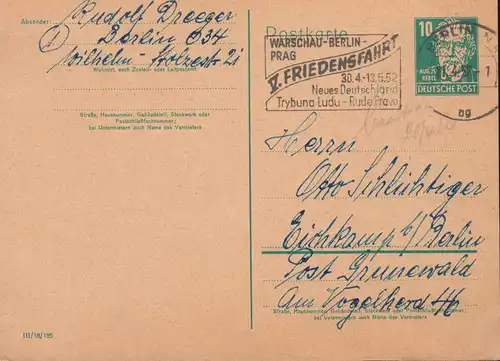 Absender: Rudolf Draeger
Berlin O34
Wilhelm-Stolzestr. 21
Wohnort, auch Zustell- oder Leitpostamt
Straße, Hausnummer, Gebäudeteil, Stockwerk oder
Postschließfachnummer;
bei Untermietern auch Name des Vermieters
III/18/185
Postkarte
WARSCHAU-BERLIN-
PRAG
V. FRIEDENSFAHRT
30.4.-13.5.52
Neues Deutschland
Trybuna Ludu - Rude Pravo
BERLIN N
bg
10
AUGUST
BEBEL
DEUTSCHE POST
Herrn
Otto Schlichtiger
Eichkamp b/Berlin
Post Grunewald
Am Vogelherd 46
Straße, Hausnummer, Gebäudeteil, Stockwerk oder Postschließfachnummer;
bei Untermietern auch Name des Vermieters